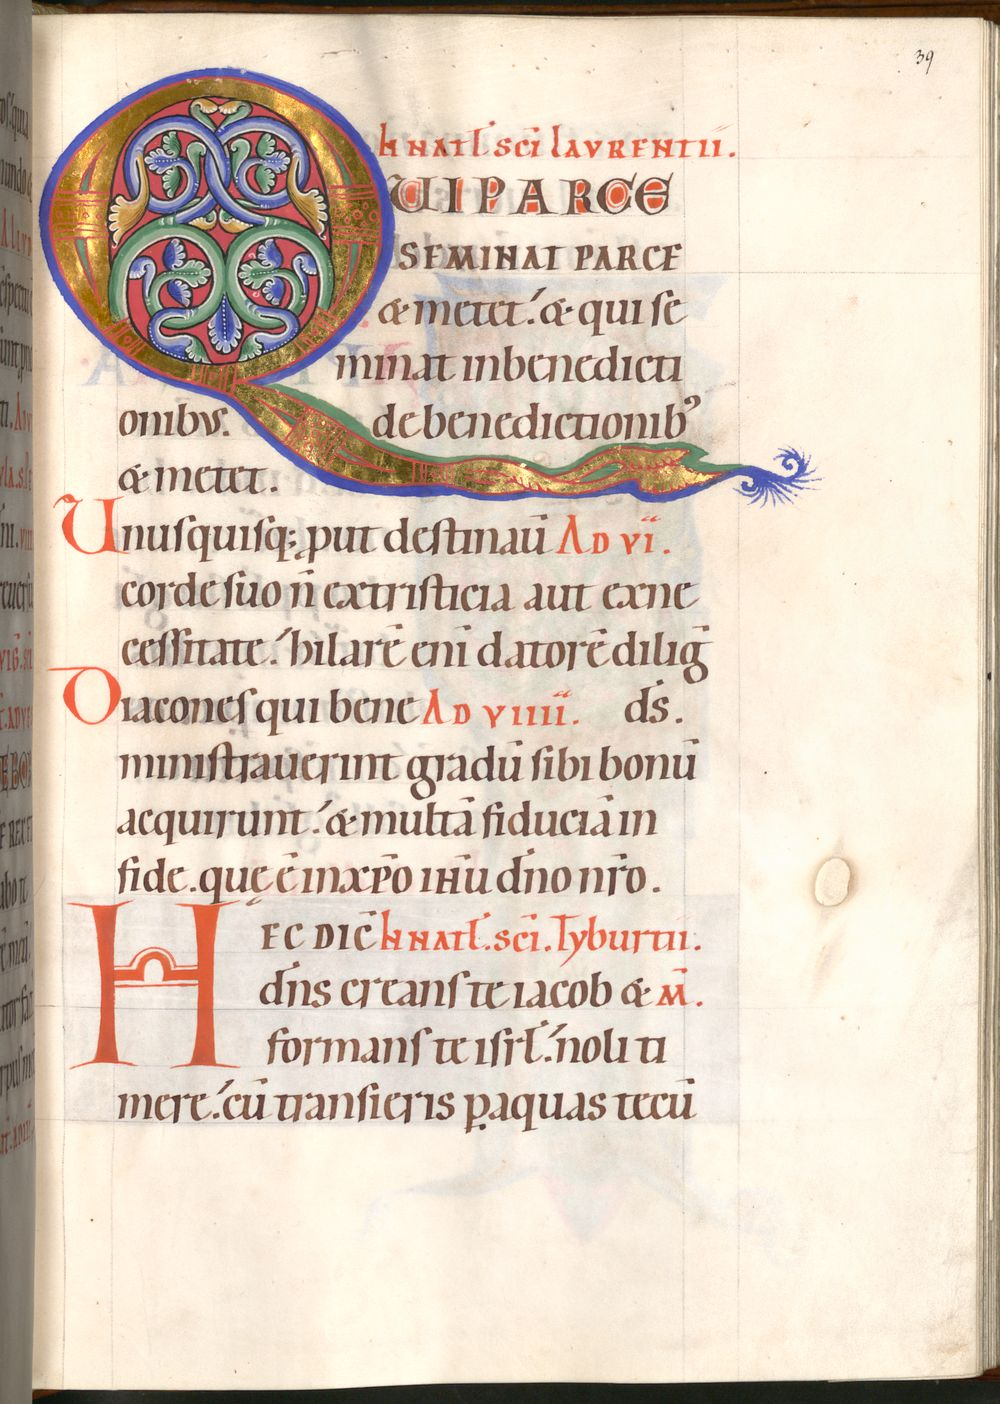 39
IN NATL̄. SCĪ LAVRENTII.
QUI PARCE
SEMINAT PARCE
& metet. & qui se
minat inbenedicti
onibus. debenedictionib⁹
& metet.
Unusquisq; ꝓut destinauī AD VI.
corde suo n̄ extristicia aut exne
cessitate. hilarē enī datorē dilig̅
Diacones qui bene AD VIIII. d̄s.
ministrauerint gradū sibi bonū
acquirunt. & multā fiduciā in
fide. quę ē inxp̄o ihu̅ dn̄o nr̄o.
HEC DIC̄ IN NATL̄. SCĪ. Tyburtii.
dn̄s creans te iacob & M̄.
formans te isrl̄. noli ti
mere. cū transieris ꝑaquas tecū